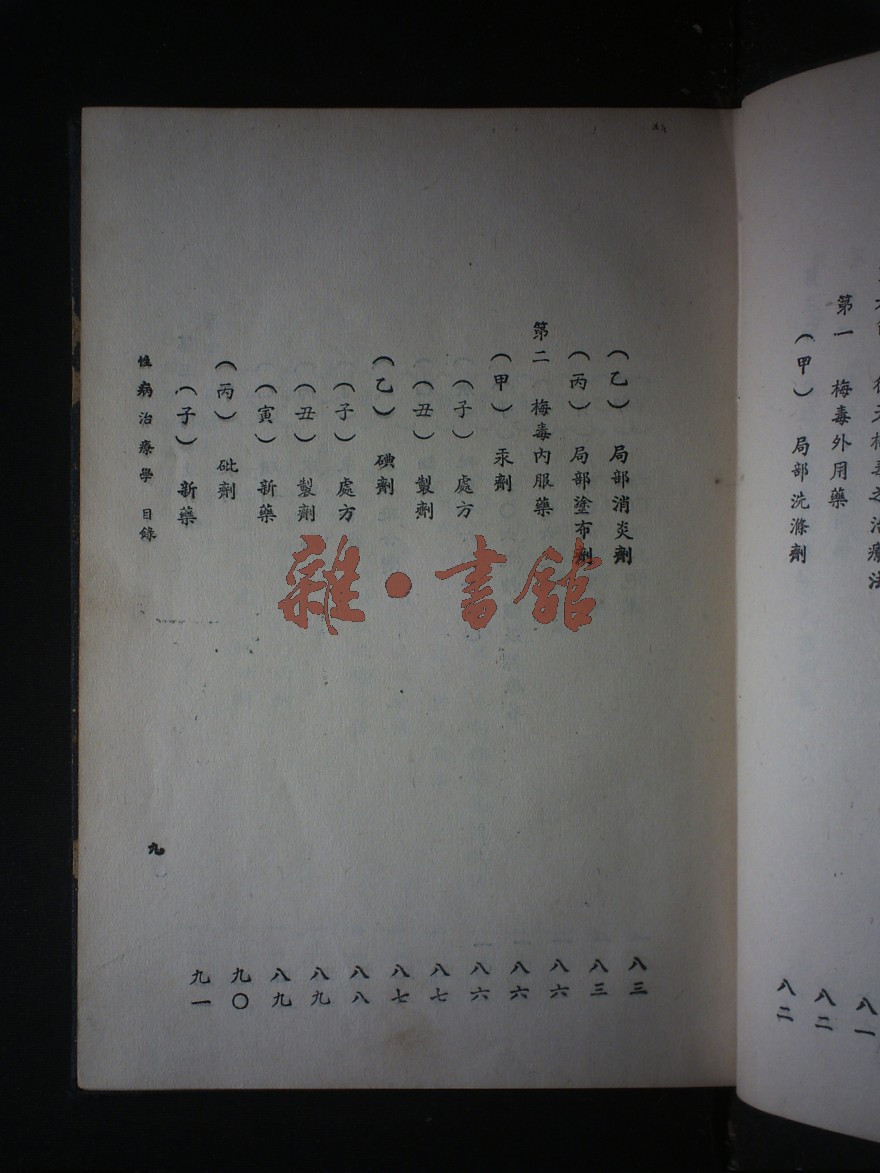 梅毒之治療法 八一
第一 梅毒外用藥 八二
（甲） 局部洗滌劑 八二
（乙） 局部消炎劑 八三
（丙） 局部塗布劑 八三
第二 梅毒內服藥 八六
（甲） 汞劑 八六
（子） 處方 八六
（丑） 製劑 八七
（乙） 碘劑 八七
（子） 處方 八八
（丑） 製劑 八九
（寅） 新藥 八九
（丙） 砒劑 九〇
（子） 新藥 九一
性病治療學 目錄 九
雜·書館